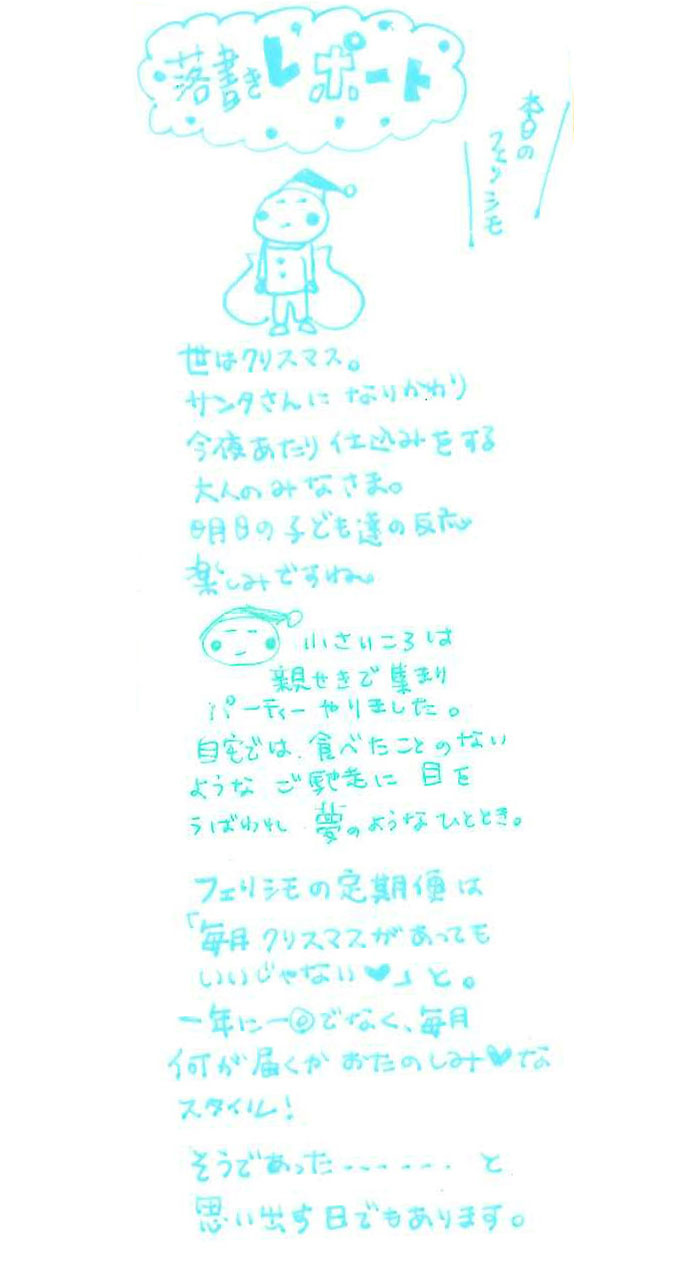 落書きレポート
本日の
フェリシモ
世はクリスマス。
サンタさんになりかわり
今夜あたり仕込みをする
大人のみなさま。
明日の子ども達の反応
楽しみですね。
小さいころは
親せきで集まり
パーティーやりました。
自宅では、食べたことのない
ようなご馳走に目を
うばわれ 夢のようなひととき。
フェリシモの定期便は
「毎月クリスマスがあっても
いいじゃない♥」と。
一年に一回でなく、毎月
何が届くかおたのしみ♥な
スタイル！
そうであった・・・・・・・と
思い出す日でもあります。